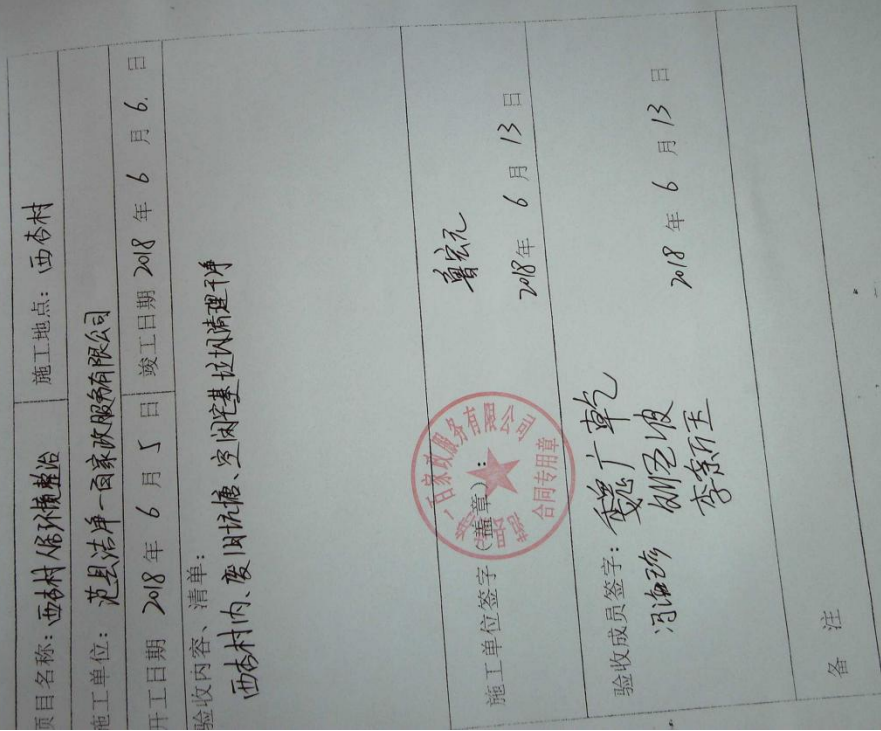 项目名称：西杏村人居环境整治 施工地点：西杏村
施工单位：范县洁净一百家政服务有限公司
开工日期 2018 年 6 月 5 日 竣工日期 2018 年 6 月 6. 日
验收内容、清单：
西杏村内、废旧坑塘、空闲宅基垃圾清理干净
施工单位签字（盖章）： 鲁宏元
一百家政服务有限公司
合同专用章
2018年 6 月 13 日
验收成员签字： 魏广乾
冯海珍
2018 年 6 月 13 日
备 注